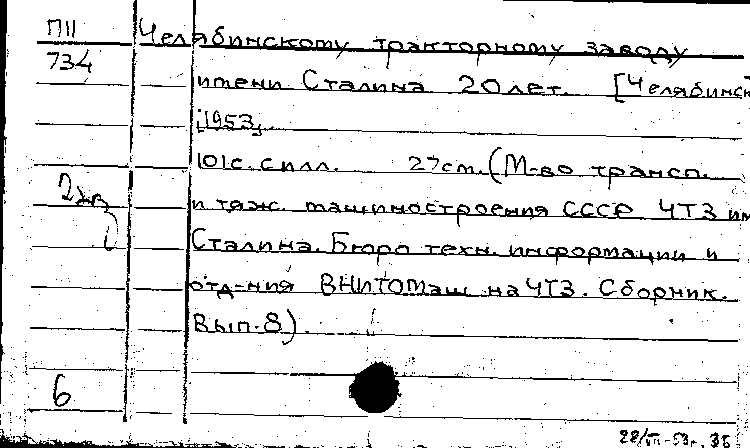 П11
734
Челябинскому тракторному заводу
имени Сталина 20 лет. [Челябинск
1953,
101с. с илл. 27см. (М-во трансп.
2 экз
и тяж. машиностроения СССР ЧТЗ им
Сталина. Бюро техн. информации и
отд-ния ВНИТОМаш на ЧТЗ. Сборник.
Вып. 8).
6
28/VII-53г.